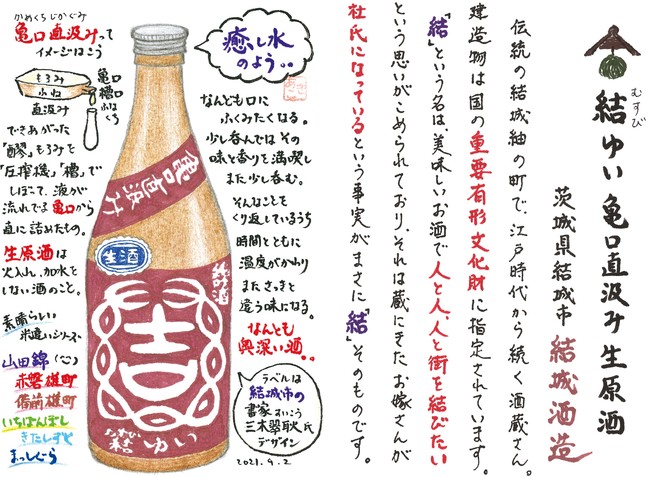 結ゆい 亀口直汲み生原酒
むすび
茨城県結城市 結城酒造
伝統の結城紬の町で、江戸時代から続く酒蔵さん。
建造物は国の重要有形文化財に指定されています。
「結」という名は、美味しいお酒で人と人、人と街を結びたい
という思いがこめられており、それは蔵にきたお嫁さんが
杜氏になっているという事実がまさに「結」そのものです。
癒し水
のよう。。
なんとも口に
ふくみたくなる。
少し呑んではその
味と香りを満喫し
また少し呑む。
そんなことを
くり返しているうち
時間とともに
温度がかわり
またさっきと
違う味になる。
なんとも
奥深い酒。。
ラベルは
結城市の
書家すいこう
三木翠耿氏
デザイン
2021.9.2
かめくちじかぐみ
亀口直汲みって
イメージはこう
もろみ
ふね
亀口
槽口
ふなくち
直汲み
できあがった
「醪」もろみを
「圧搾機」「槽」で
しぼって、液が
流れでる亀口から
直に詰めたもの。
生原酒は
火入れ、加水を
しない酒のこと。
素晴らしい
米違いシリーズ
山田錦(心)
赤磐雄町
備前雄町
いちほまれ
きたしずく
まっしぐら
亀口直汲み
生酒
純吟酒
むすび
結ゆい